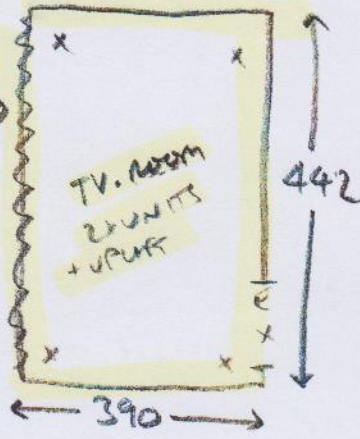 TV. ROOM
2x UNITS
+ UPLIFT
442
390